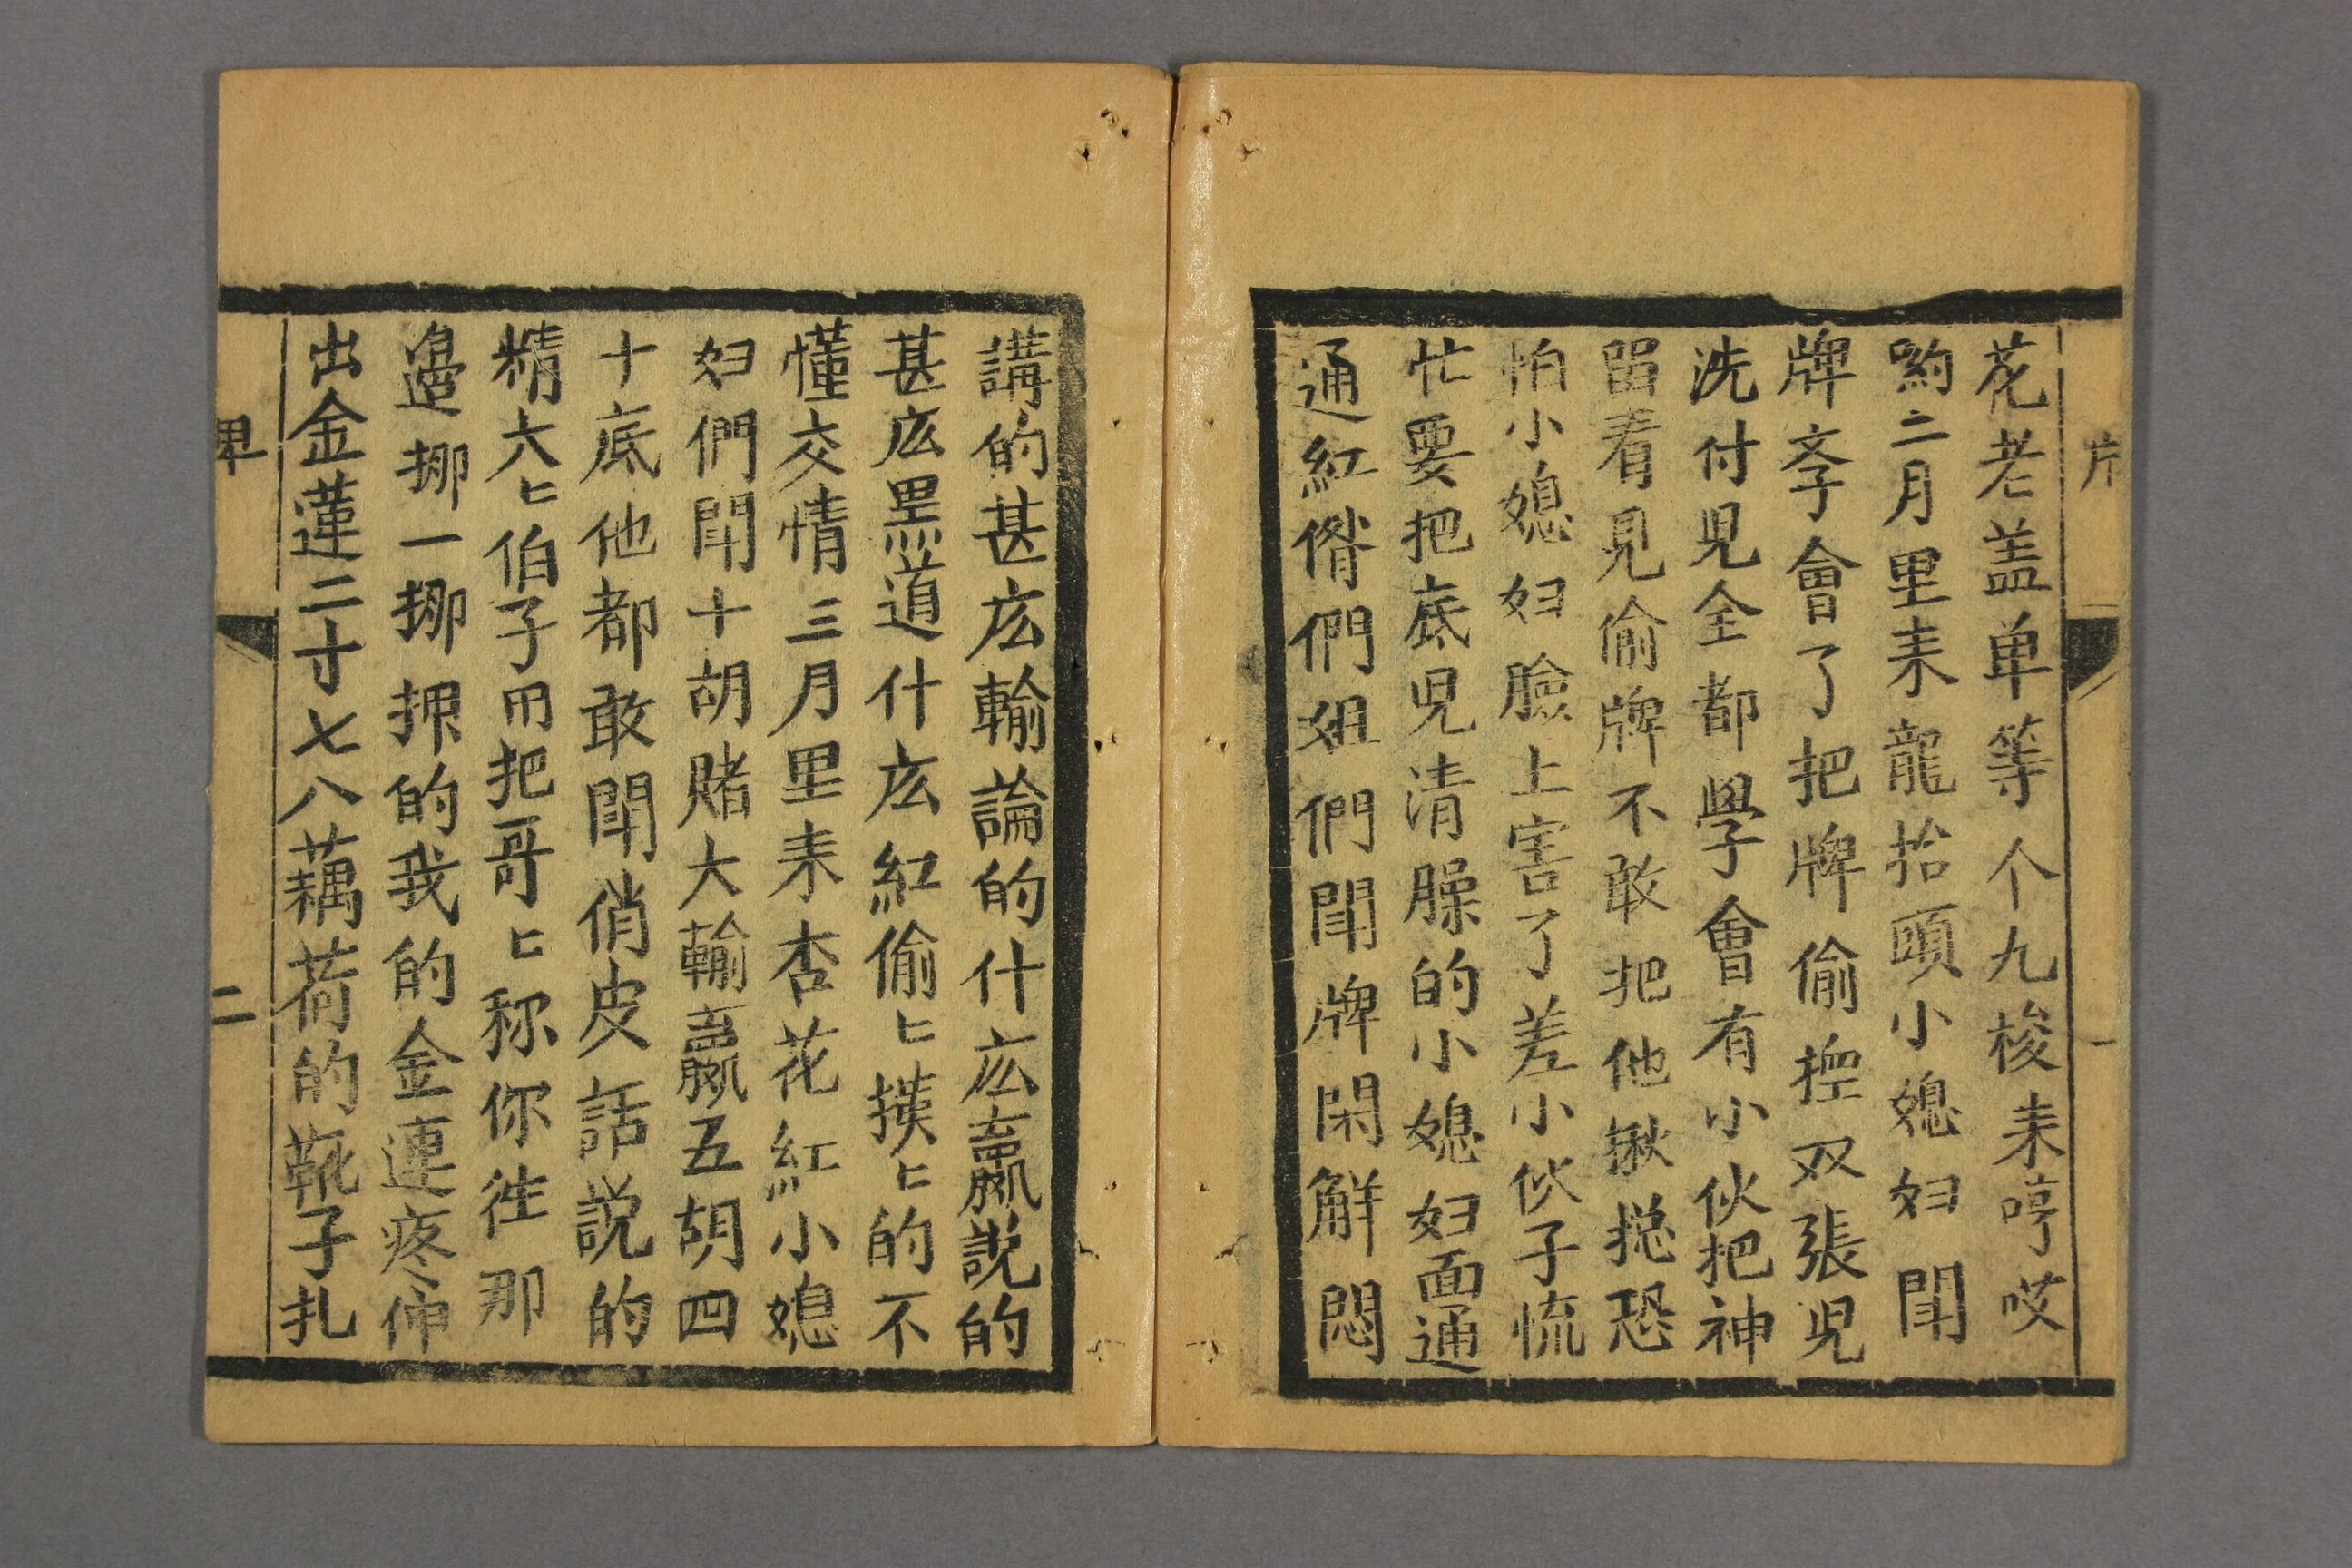 花老盖单等个九梭耒哼哎
喲二月里耒龍抬頭小媳妇鬧
牌斈會了把牌偷揑双張児
洗付児全都學會有小伙把神
畄看見偷牌不敢把他揪捴恐
怕小媳妇臉上害了羞小伙子慌
忙要把底児清臊的小媳妇面通
通紅偺們姐們鬧牌閑解悶
講的甚庅輸論的什庅贏説的
甚庅黒道什庅紅偷匕摸匕的不
懂交情三月里耒杏花紅小媳
妇們鬧十胡賭大輸贏五胡四
十底他都敢鬧俏皮話説的
精大匕伯子用把哥匕称你徃那
邉挪一挪押的我的金連疼伸
出金蓮二寸七八藕荷的靴子扎
二